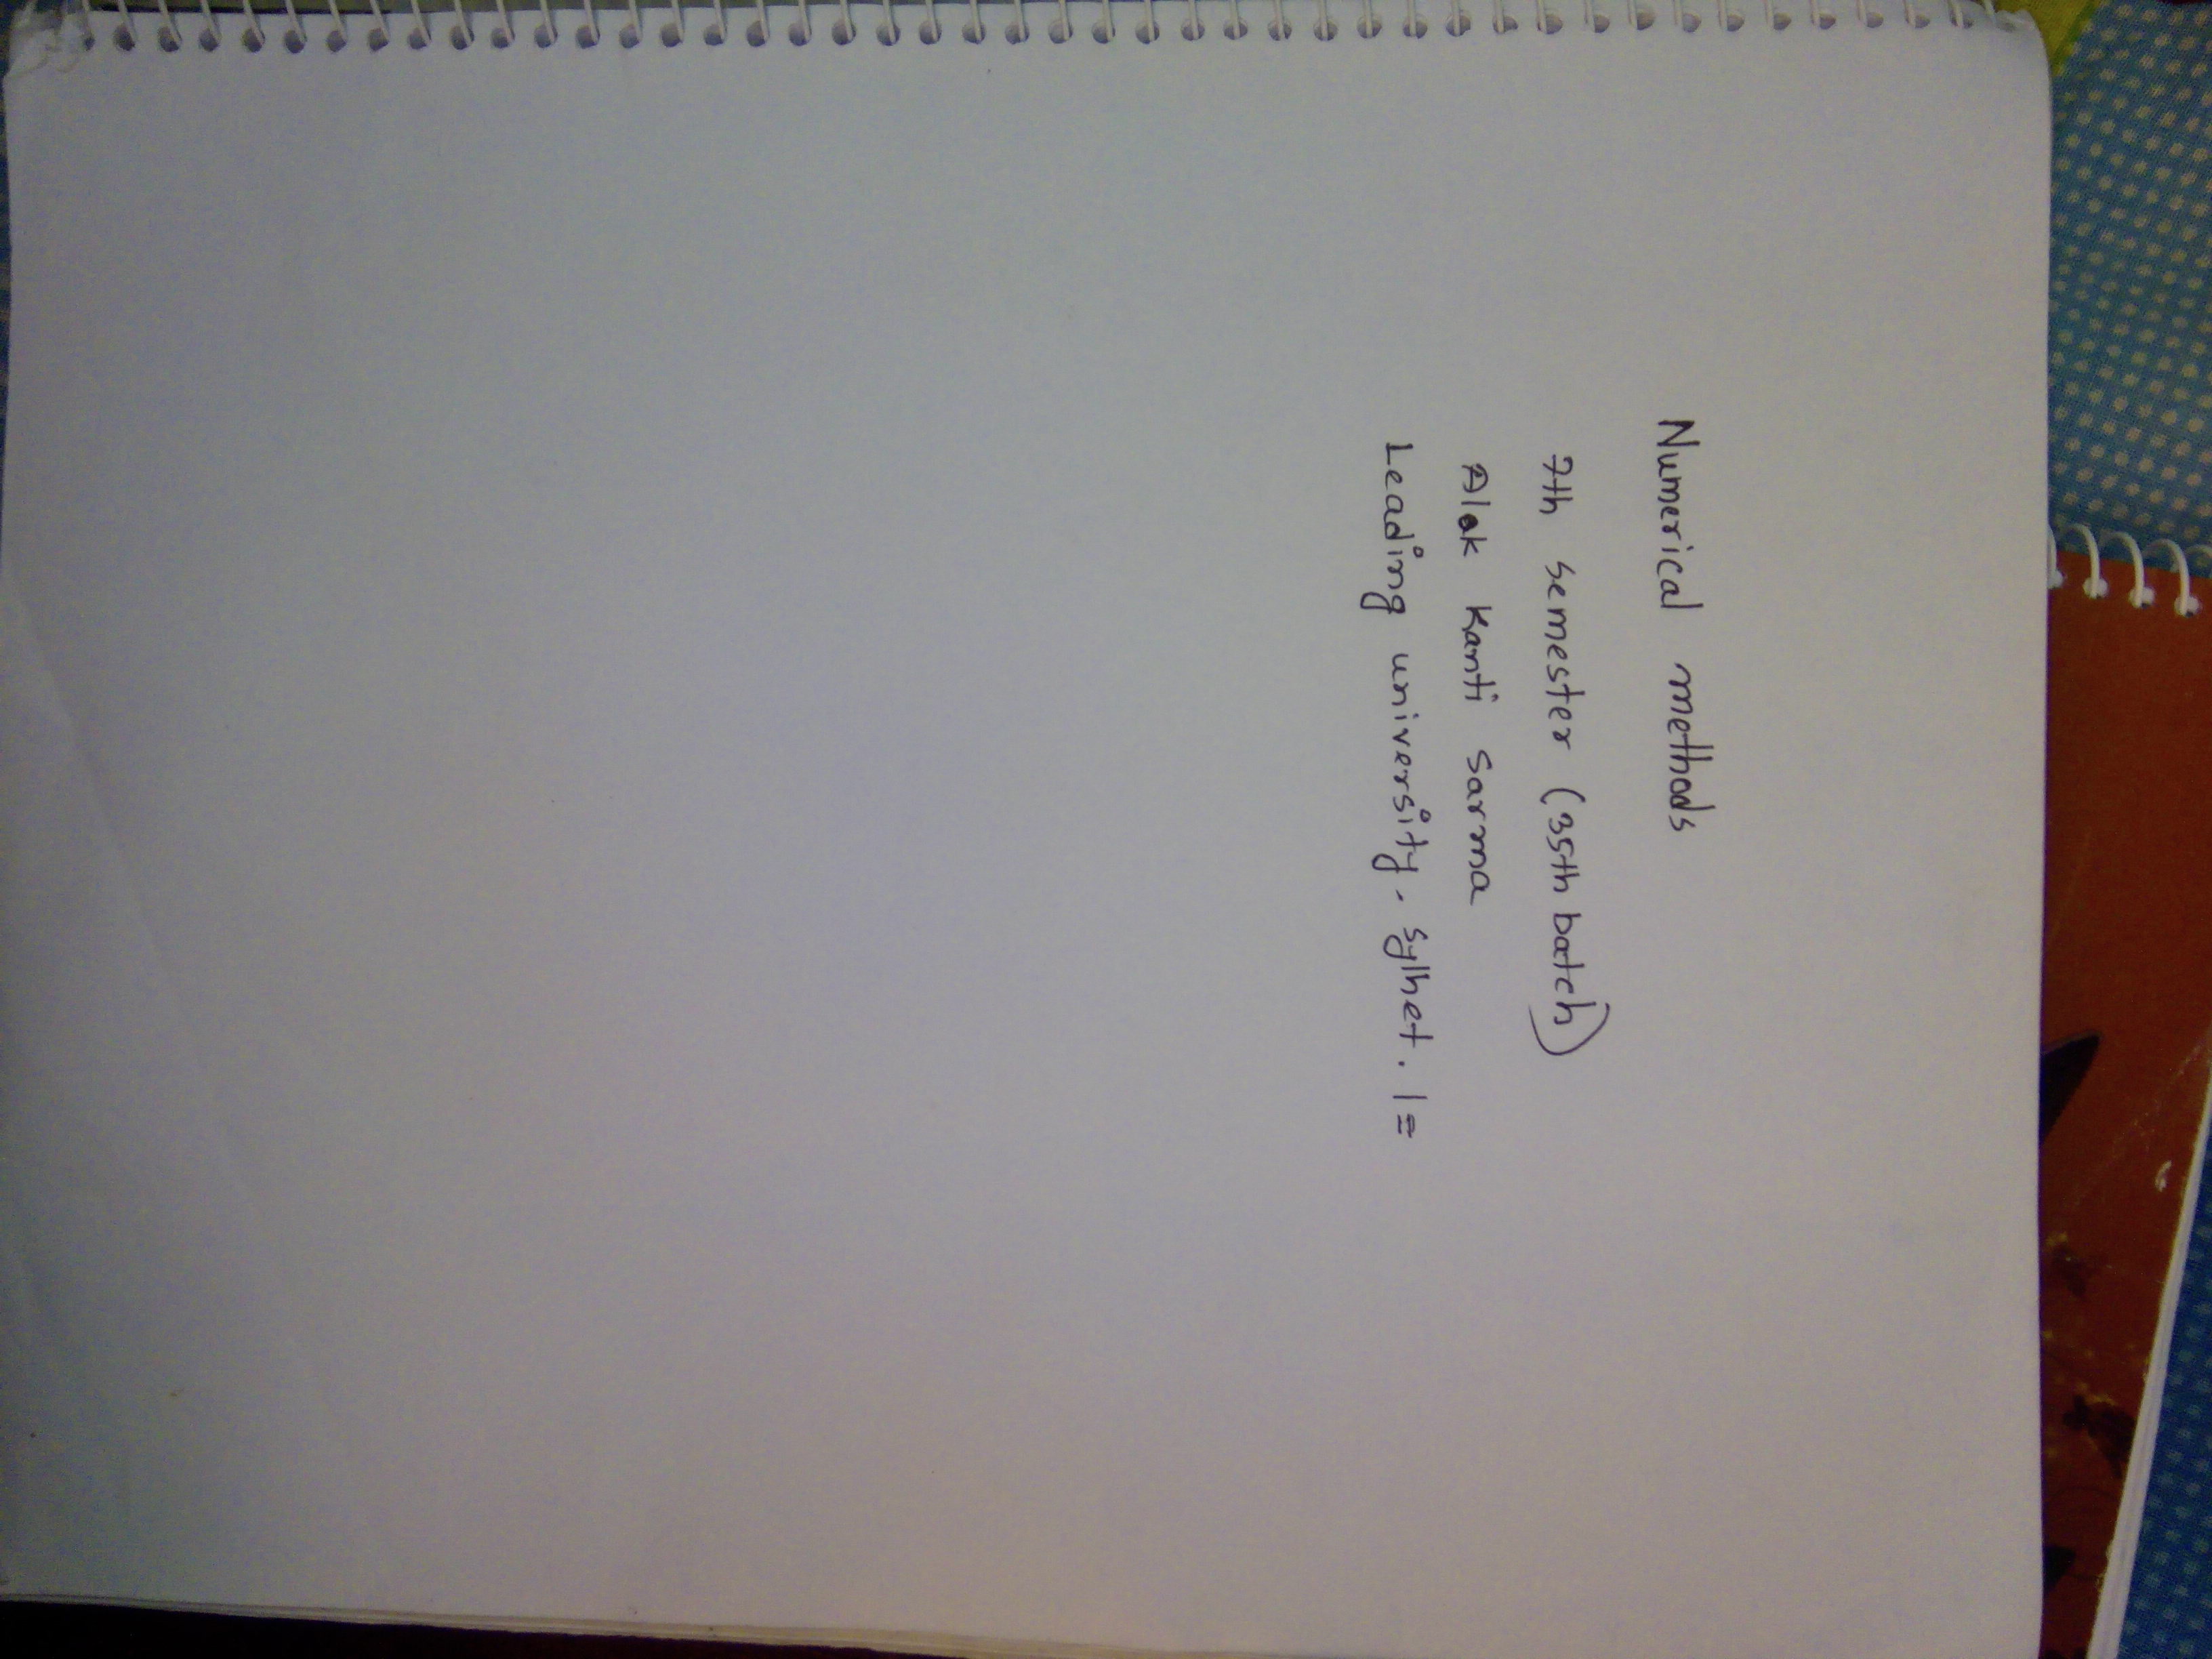 Numerical methods
7th semester (35th batch)
Alok Kanti Sarma
Leading university. Sylhet. |=